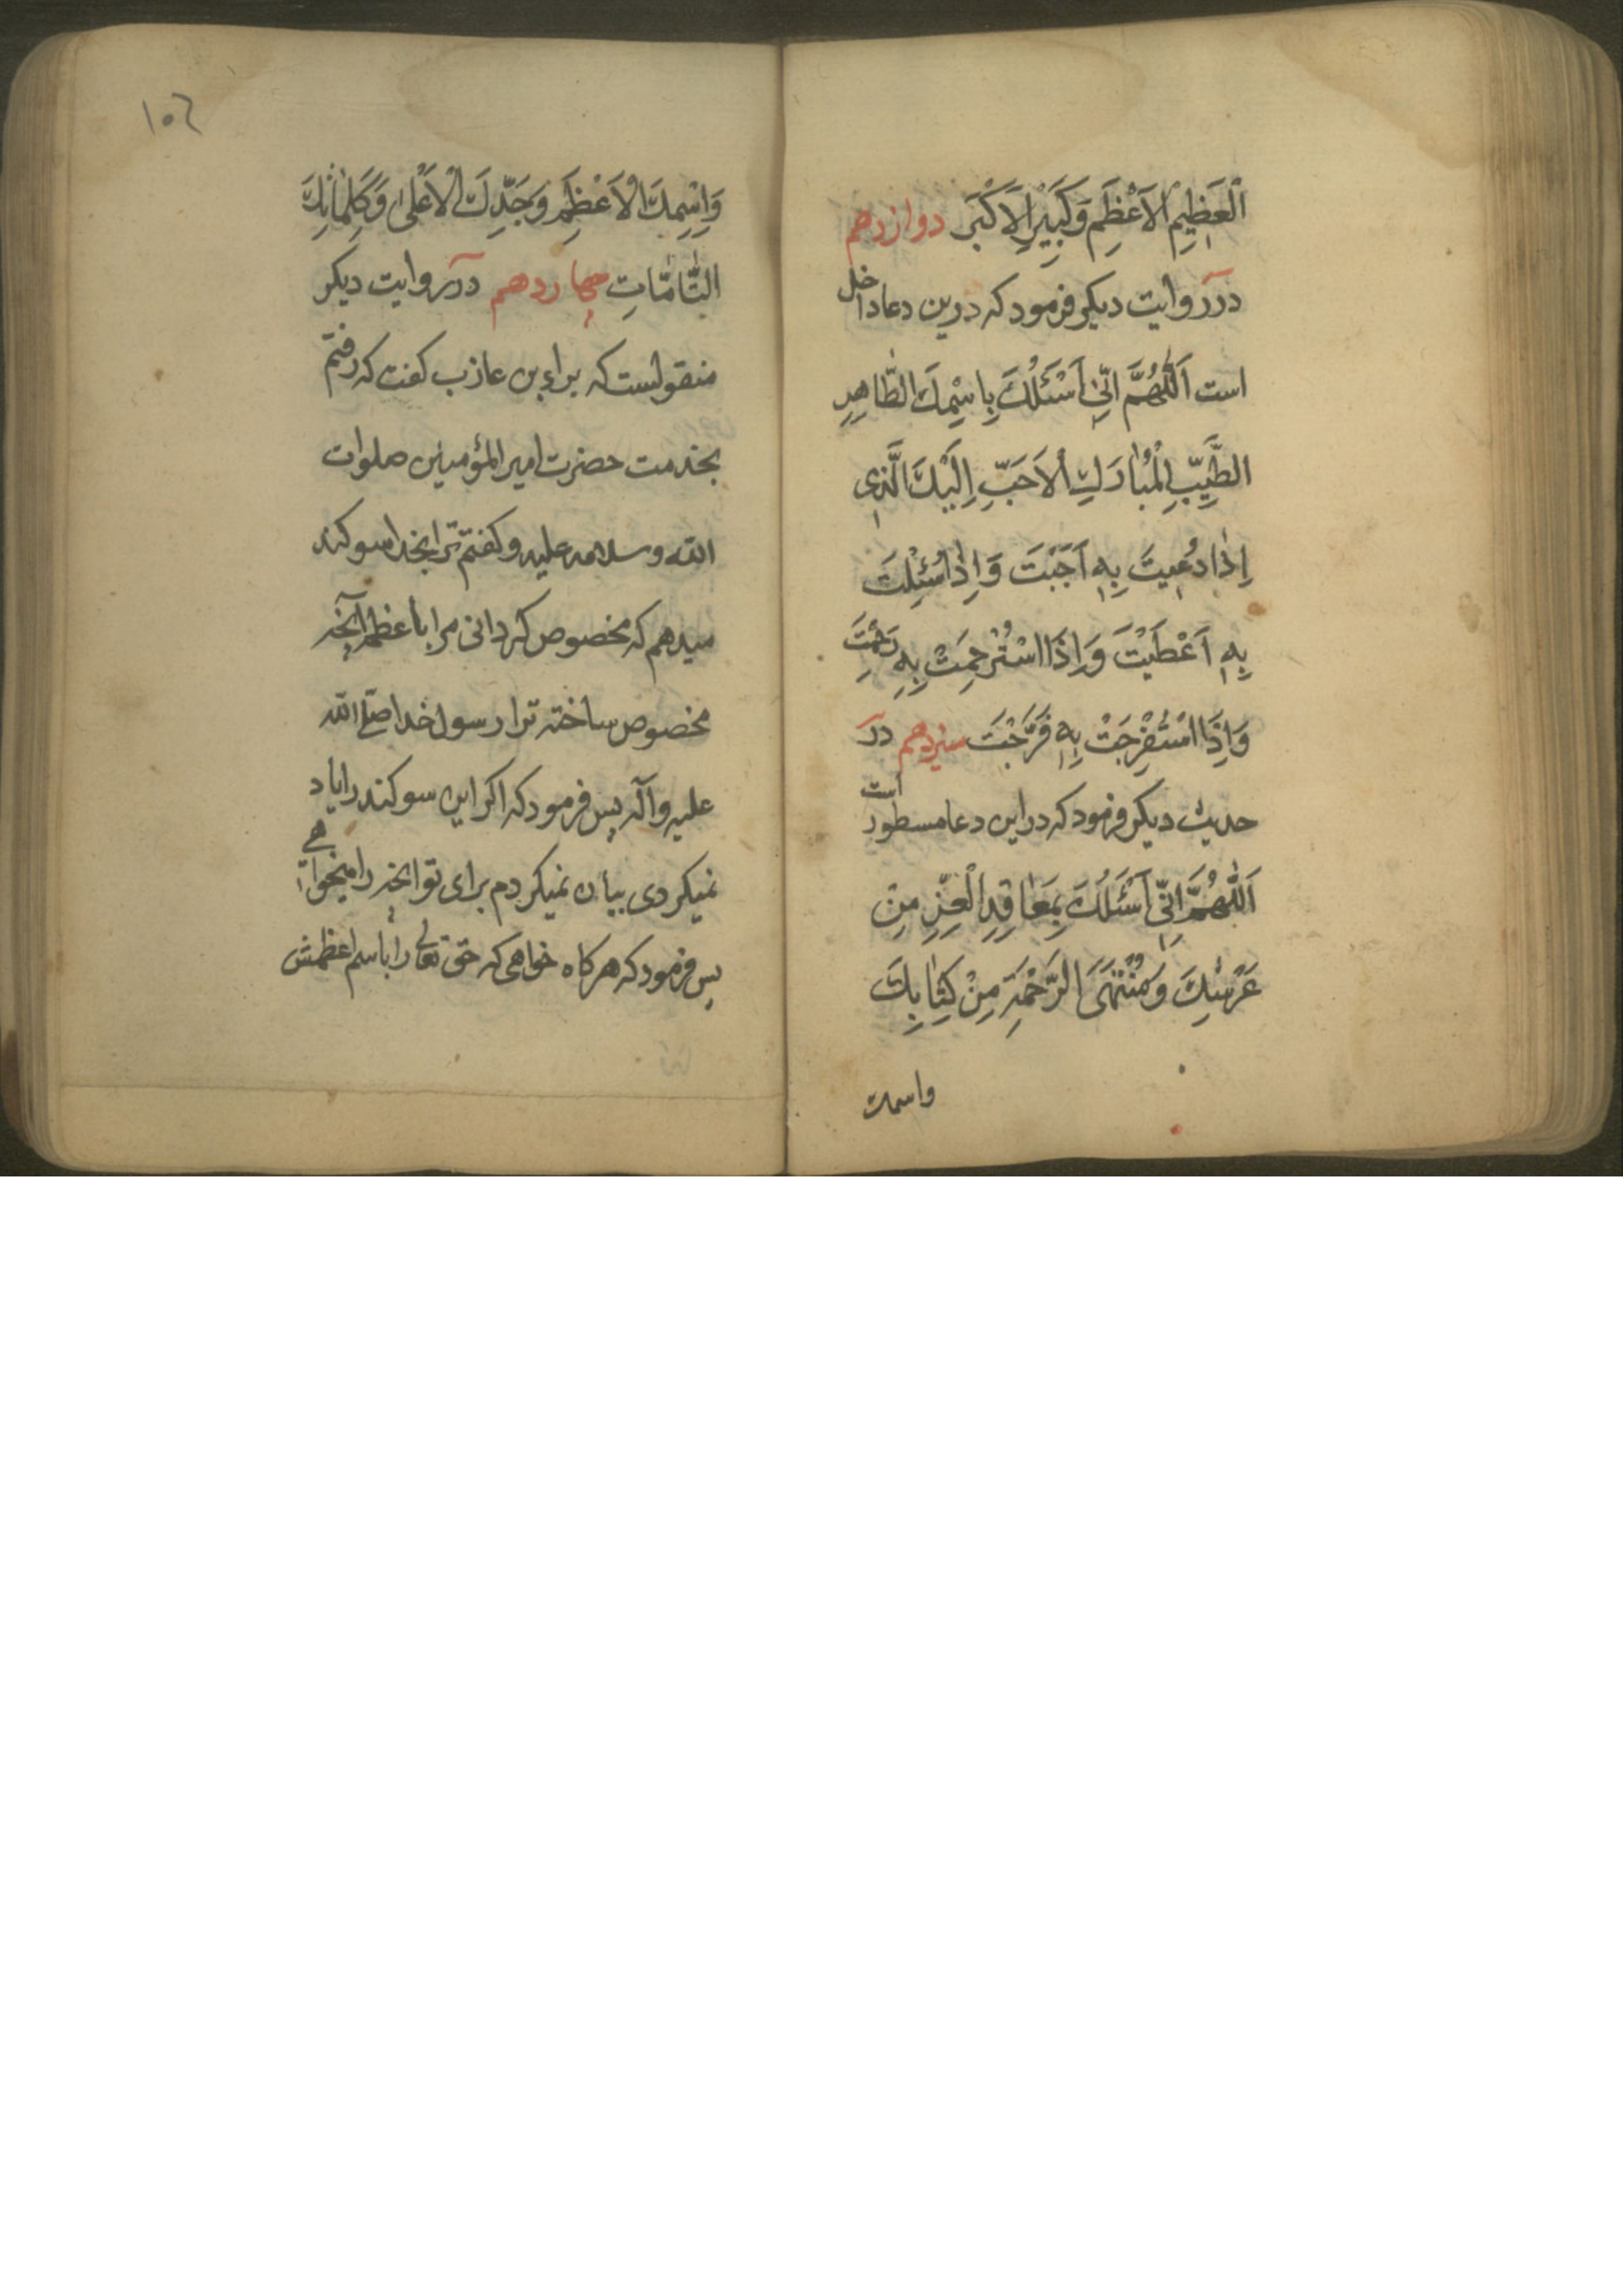 اَلْعَظِيمِ الْاَعْظَمِ وَكَبِيرِ الْاَكْبَرِ دوازدهم
در روایت دیکر فرمود که درین دعا داخل
است اَللّٰهُمَّ اِنّي اَسْئَلُكَ بِاسْمِكَ الطّاهِرِ
الطَّيِّبِ الْمُبارَكِ الْاَحَبِّ اِلَيْكَ الَّذي
اِذٰا دُعيتَ بِهِ اَجَبْتَ وَاِذٰا سُئِلْتَ
بِهِ اَعْطَيْتَ وَاِذَا اسْتُرْحِمْتَ بِهِ رَحِمْتَ
وَاِذَا اسْتُفْرِجْتَ بِهِ فَرَّجْتَ سیزدهم در
حدیث دیکر فرمود که در این دعا مسطور است
اَللّٰهُمَّ اِنّي اَسْئَلُكَ بِمَعٰاقِدِ الْعِزِّ مِنْ
عَرْشِكَ وَمُنْتَهَى الرَّحْمَةِ مِنْ كِتٰابِكَ
واسمك
١٠٦
وَاِسْمِكَ الْاَعْظَمِ وَجَدِّكَ الْاَعْلىٰ وَكَلِمٰاتِكَ
التّٰامّٰاتِ چهاردهم در روایت دیکر
منقولست که براء بن عازب کفت که رفتم
بخدمت حضرت امیر المؤمنین صلوات
الله وسلامه علیه وکفتم ترا بخدا سوکند
میدهم که مخصوص کردانی مرا باعظم آنچه
مخصوص ساخته ترا رسول خدا صلی الله
علیه وآله پس فرمود که اکر این سوکند را یاد
نمیکردی بیان نمیکردم برای تو انچه را میخواهی
پس فرمود که هرکاه خواهی که حق تعالی را باسم اعظمش